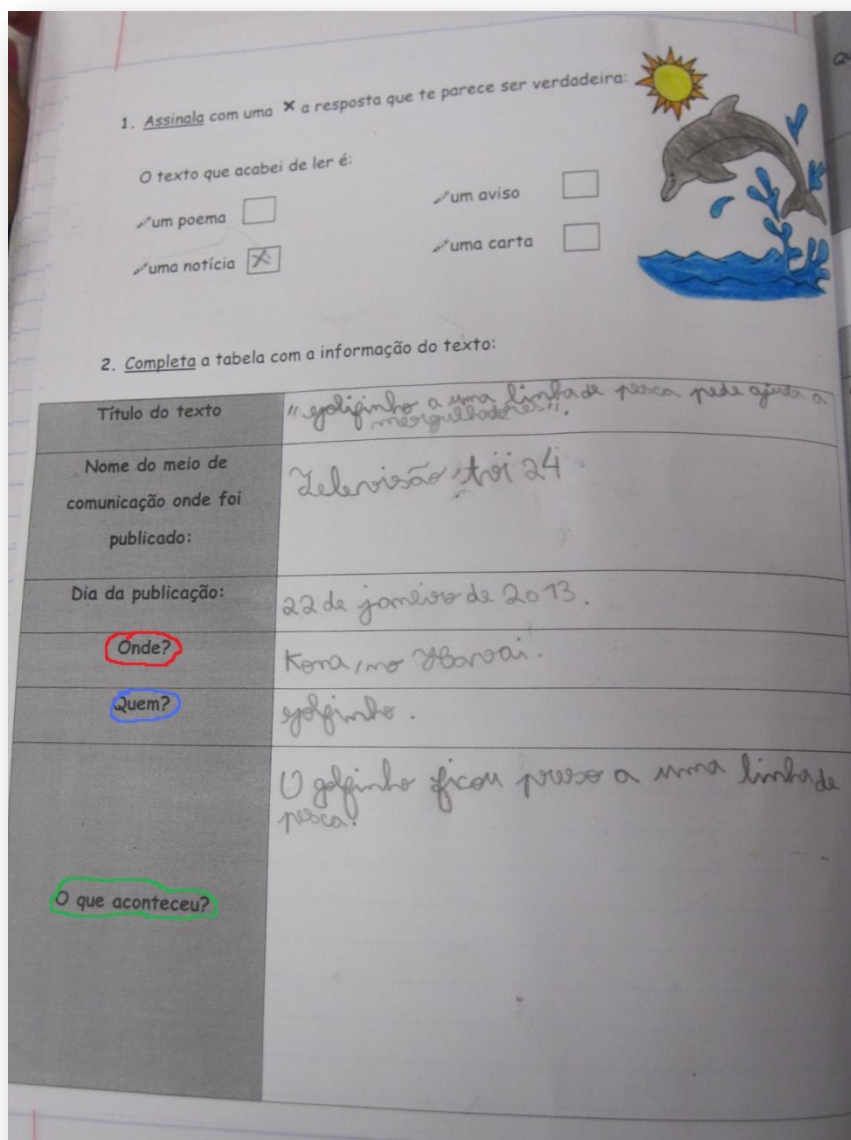 1. Assinala com uma × a resposta que te parece ser verdadeira:
O texto que acabei de ler é:
um poema
um aviso
uma notícia X
uma carta
2. Completa a tabela com a informação do texto:
Título do texto
"golfinho a uma linha de pesca pede ajuda a
mergulhadores".
Nome do meio de
comunicação onde foi
publicado:
Televisão, tvi 24
Dia da publicação:
22 de janeiro de 2013.
Onde?
Kona, no Havai.
Quem?
golfinho.
O que aconteceu?
O golfinho ficou preso a uma linha de
pesca.